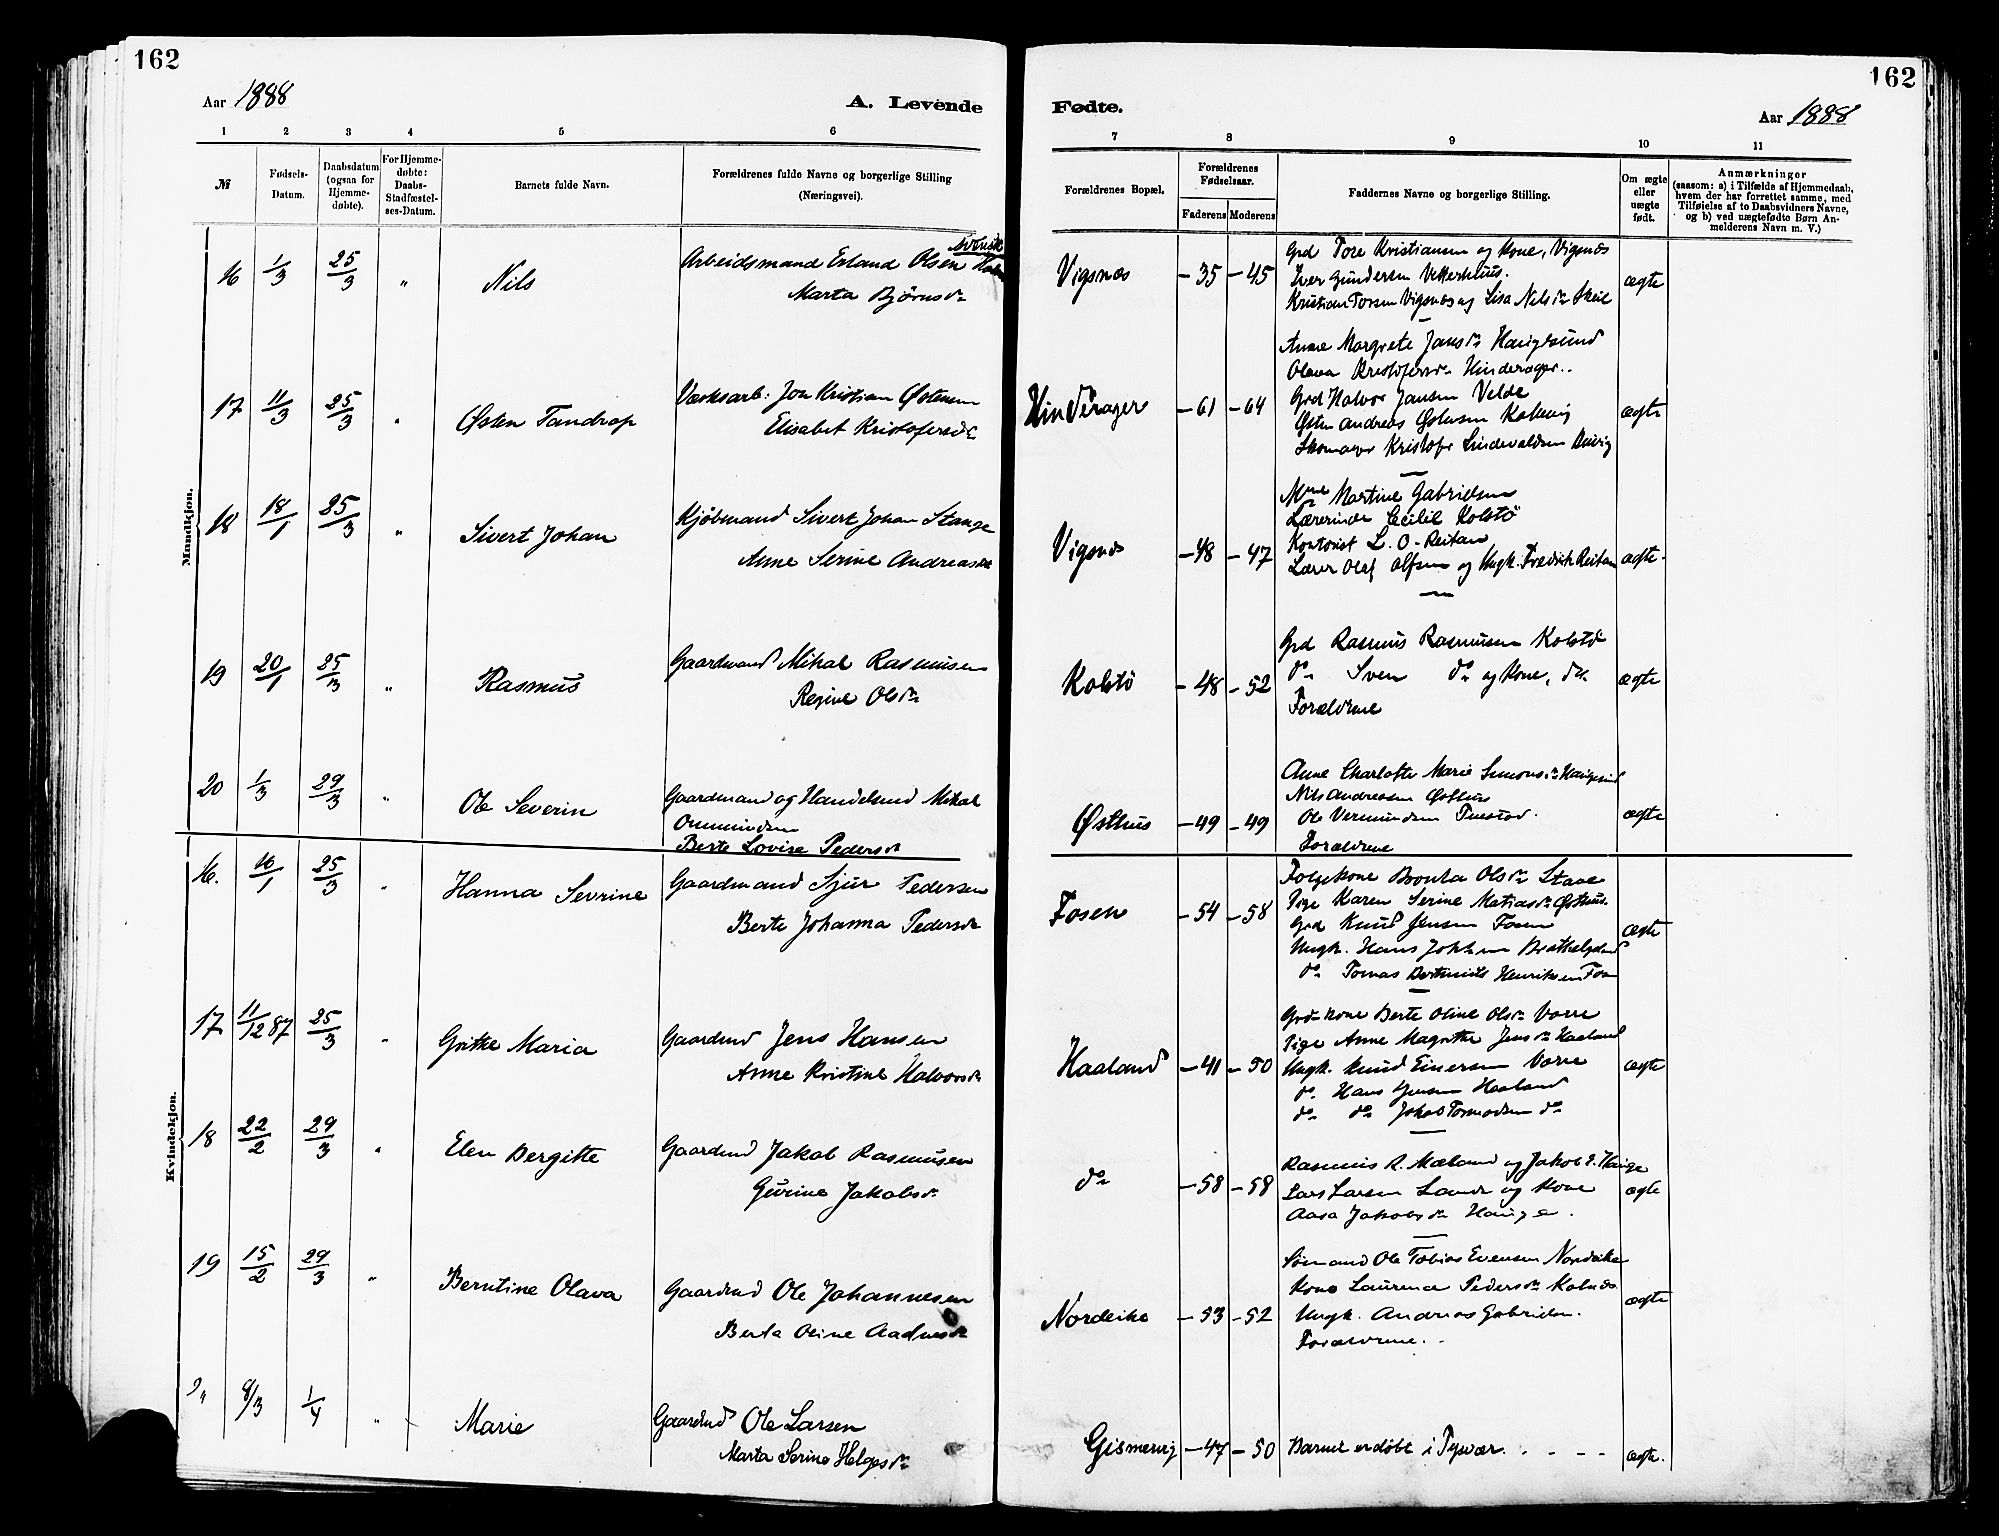 162
Aar 1888
A. Levende
1 2 3 4 5 6
№
Fødsels-Datum.
Daabsdatum (ogsaa for Hjemme-døbte).
For Hjemme-døbte: Daabs-Stadfæstel-ses-Datum.
Barnets fulde Navn.
Forældrenes fulde Navne og borgerlige Stilling (Næringsvei).
Mandkjøn.
16 1/3 25/3 " Nils Arbeidsmand Erland Olsen
Marta Bjørnsdr
17 11/3 25/3 " Østen Tandrap Værksarb: Jon Kristian Østensen
Elisabet Kristofersdr
18 18/1 25/3 " Sivert Johan Kjøbmand Sivert Johan Stange
Anne Serine Andreasdr
19 20/1 25/3 " Rasmus Gaardmand Mikal Rasmusen
Regine Olsdr
20 1/3 29/3 " Ole Severin Gaardmand og Handelsmd Mikal
Ommundsen
Berte Lovise Pedersdr
Kvindekjøn.
16. 16/1 25/3 " Hanna Sevrine Gaardmand Sjur Pedersen
Berte Johanna Pedersdr
17 11/12 87 25/3 " Gritke Maria Gaardmd Jens Hansen
Anne Kristine Halvorsdr
18 22/2 29/3 " Elen Bergitte Gaardmd Jakob Rasmusen
Gurine Jakobsdr
19 15/2 29/3 " Berntine Olava Gaardmd Ole Johannesen
Berta Oline Aadnesdr
" 8/3 1/4 " Marie Gaardmd Ole Larsen
Marta Serine Helgesdr
162
Fødte.
Aar 1888
7 8 9 10 11
Forældrenes Bopæl.
Forældrenes Fødselsaar.
Faderens Moderens
Faddernes Navne og borgerlige Stilling.
Om ægte eller uægte født.
Anmærkninger
(saasom: a) i Tilfælde af Hjemmedaab,
hvem der har forrettet samme, med
Tilføielse af to Daabsvidners Navne,
og b) ved uægtefødte Børn An-
melderens Navn m. V.)
Grd Tore Kristiansen og Kone, Vigsnæs
Vigsnæs – 35 – 45 Iver Gundersen ægte
Kristian Torsen Vigsnæs og Lisa Nilsdr Skeie
Anne Margrete Jansdr Haugesund
Olava Kristofersdr Hinderager.
Hinderager – 61 – 64 Grd Halvor Jansen Velde ægte
Østen Andreas Østensen
Skomager Kristofer
Martine Gabrielsen
Lærerinde Cecilie Kolstø
Vigsnæs – 48 – 47 Kontorist L. O. Reitan ægte.
Lærer Olaf Olsen og Ungk. Fredrik Reitan
Grd Rasmus Rasmusen Kolstø
Kolstø – 48 – 52 do Sven do og Kone, do ægte
Forældrene
Anne Charlotte Marie Simonsdr Haugesund
Nils Andreasen Østhus
Østhus – 49 – 49 Ole Vermundsen ægte
Forældrene
Folgekone Olsdr Stave
Pige Karen Serine Matiasdr Østhus.
Fosen – 54 – 58 Grd Knud Jensen Fosen ægte
Ungk. Hans
do Tomas Henriksen Fosen
Grd-kone Berte Oline Olsdr Vorre
Pige Anne Magrethe Jensdr Haaland
Haaland – 41 – 50 Ungk. Knud Einersen Vorre ægte
do. Hans Jensen Haaland
do do Jakob Tormodsen do
Rasmus R. Mæland og Jakob E. Hauge
do – 58 – 58 Lars Larsen Lande og Kone ægte
Aasa Jakobsdr Hauge.
Sømand Ole Tobias Evensen Nordeike
Kone Laurensa Pedersdr Kolnæs
Nordeike – 53 – 52 Ungk. Andreas Gabrielsen. ægte
Forældrene.
Gismervig – 47 – 50 Barnet er døbt i Tysvær. ægte.